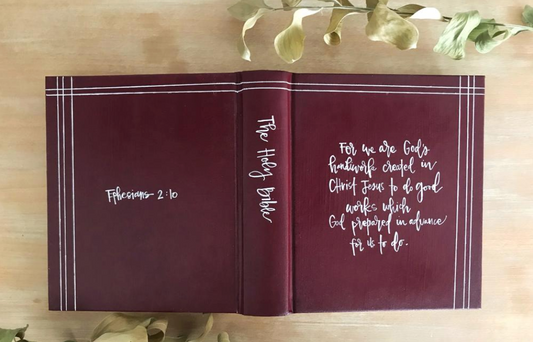 Ephesians 2:10
The Holy Bible
For we are God's
handiwork created in
Christ Jesus to do good
works which
God prepared in advance
for us to do.